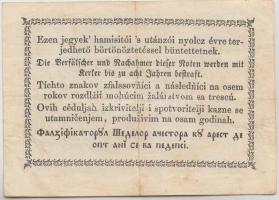 Ezen jegyek' hamisitói 's utánzói nyolcz évre ter-
jedhető börtönöztetéssel büntettetnek.
Die Verfälscher und Nachahmer dieser Noten werden mit
Kerker bis zu acht Jahren bestraft.
Tichto znakov zfalssovňáci a následňíci na osem
rokov rozdlží mohúcim žalárstvom sa trescú.
Ovih céduljah izkrivitelji i spotvoritelji kazne se
utamničenjem, produživim na osam godinah.
Фалзіфікаторꙋл Шеделор ачестора кꙋ арест де
опт ані се ва педепсі.